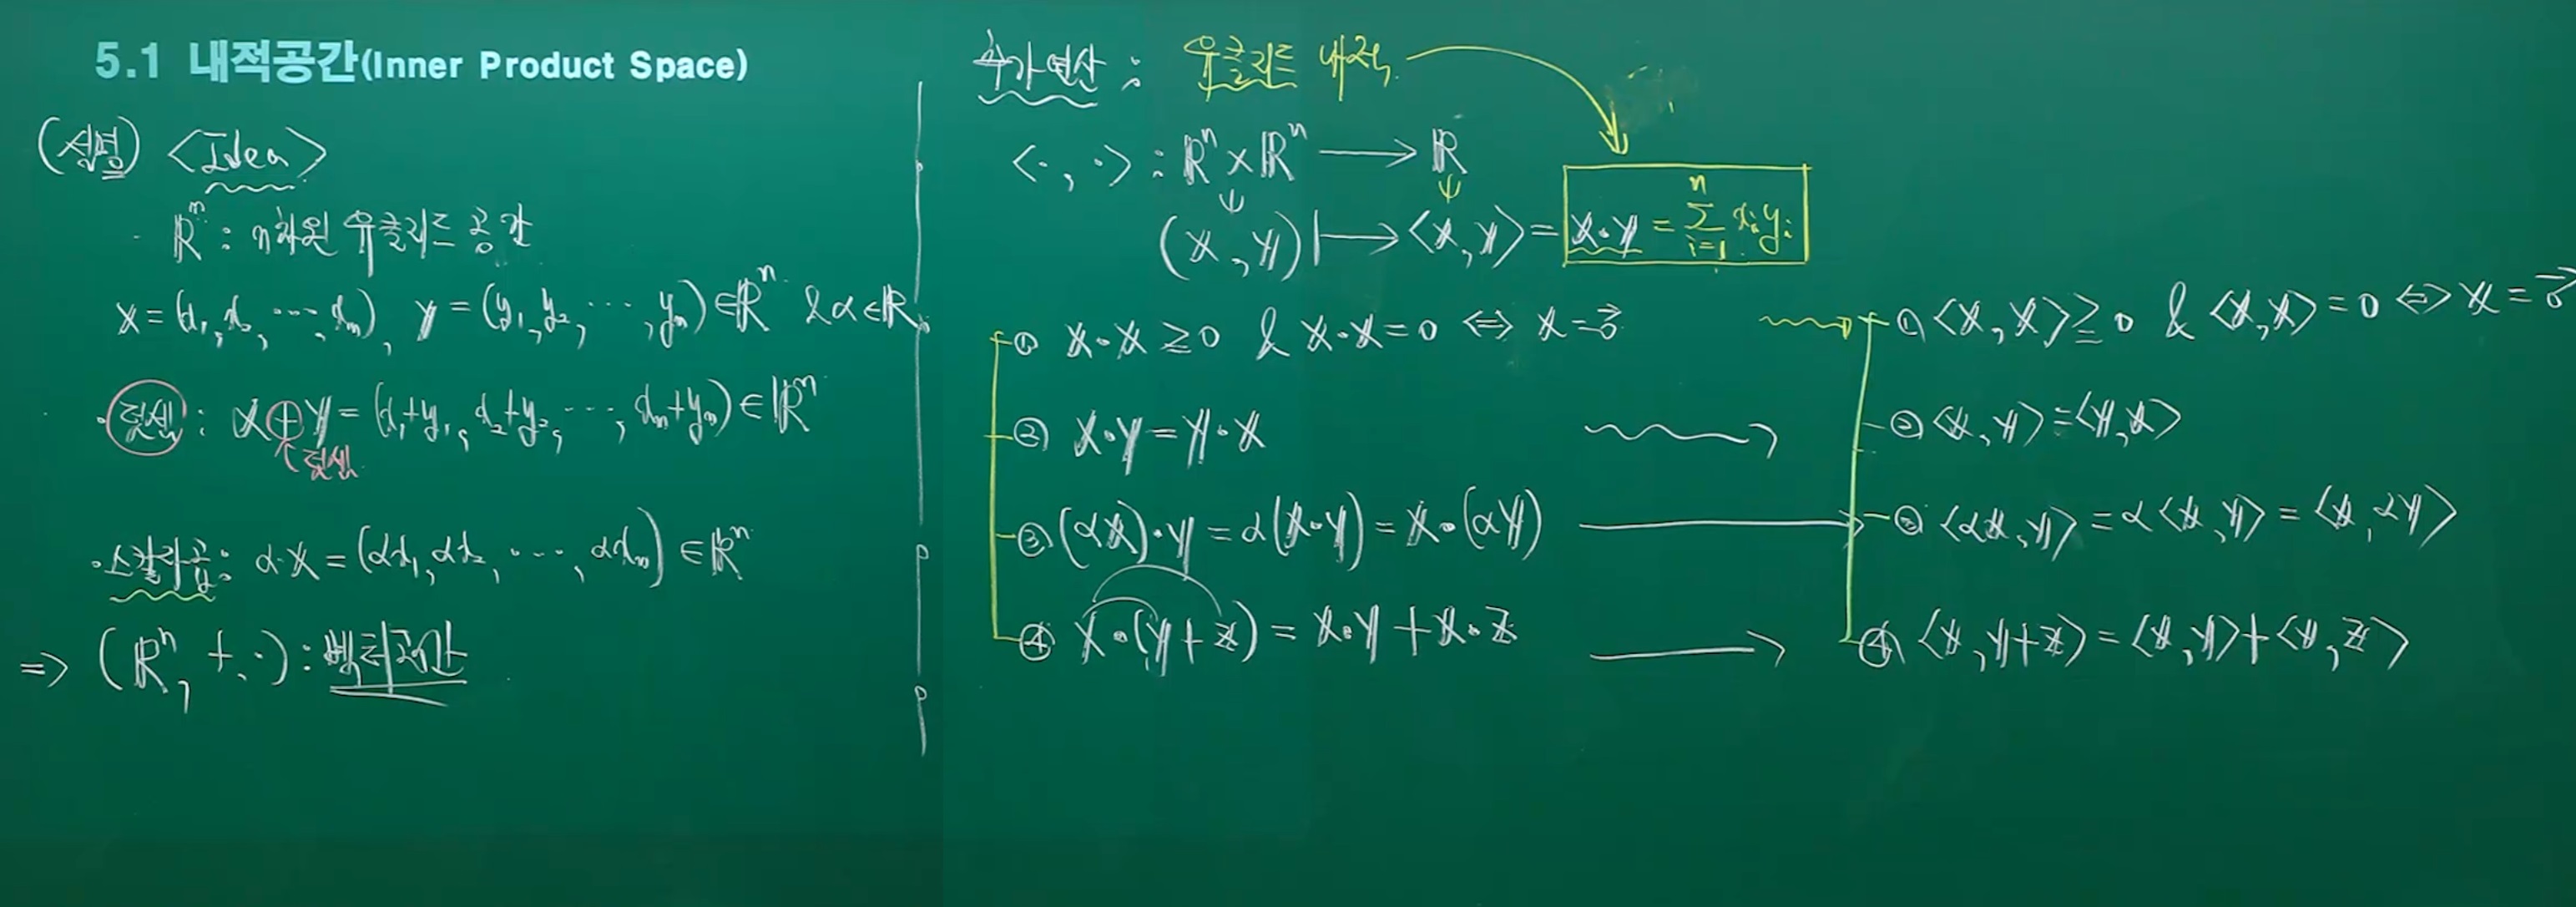 5.1 내적공간(Inner Product Space)
(설명) <Idea>
· ℝⁿ : n차원 유클리드 공간
x = (x₁, x₂, ⋯, xₙ), y = (y₁, y₂, ⋯, yₙ) ∈ ℝⁿ & α ∈ ℝ
· 덧셈 : x + y = (x₁+y₁, x₂+y₂, ⋯, xₙ+yₙ) ∈ ℝⁿ
덧셈
· 스칼라곱 : α·x = (αx₁, αx₂, ⋯, αxₙ) ∈ ℝⁿ
⇒ (ℝⁿ, +, ·) : 벡터공간
추가연산 : 유클리드 내적
<·, ·> : ℝⁿ × ℝⁿ ⟶ ℝ
(x, y) ⟼ <x, y> = x·y = Σ_{i=1}^{n} xᵢyᵢ
① x·x ≥ 0 & x·x = 0 ⇔ x = 0⃗
② x·y = y·x
③ (αx)·y = α(x·y) = x·(αy)
④ x·(y+z) = x·y + x·z
① <x, x> ≥ 0 & <x, x> = 0 ⇔ x = 0⃗
② <x, y> = <y, x>
③ <αx, y> = α<x, y> = <x, αy>
④ <x, y+z> = <x, y> + <x, z>